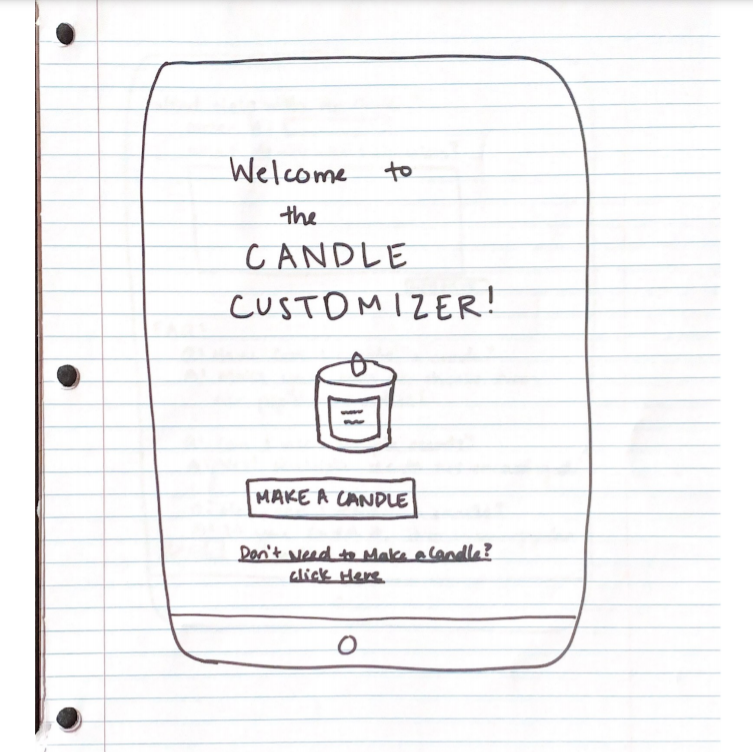 Welcome to
the
CANDLE
CUSTOMIZER!
MAKE A CANDLE
Don't Need to Make a Candle?
Click Here